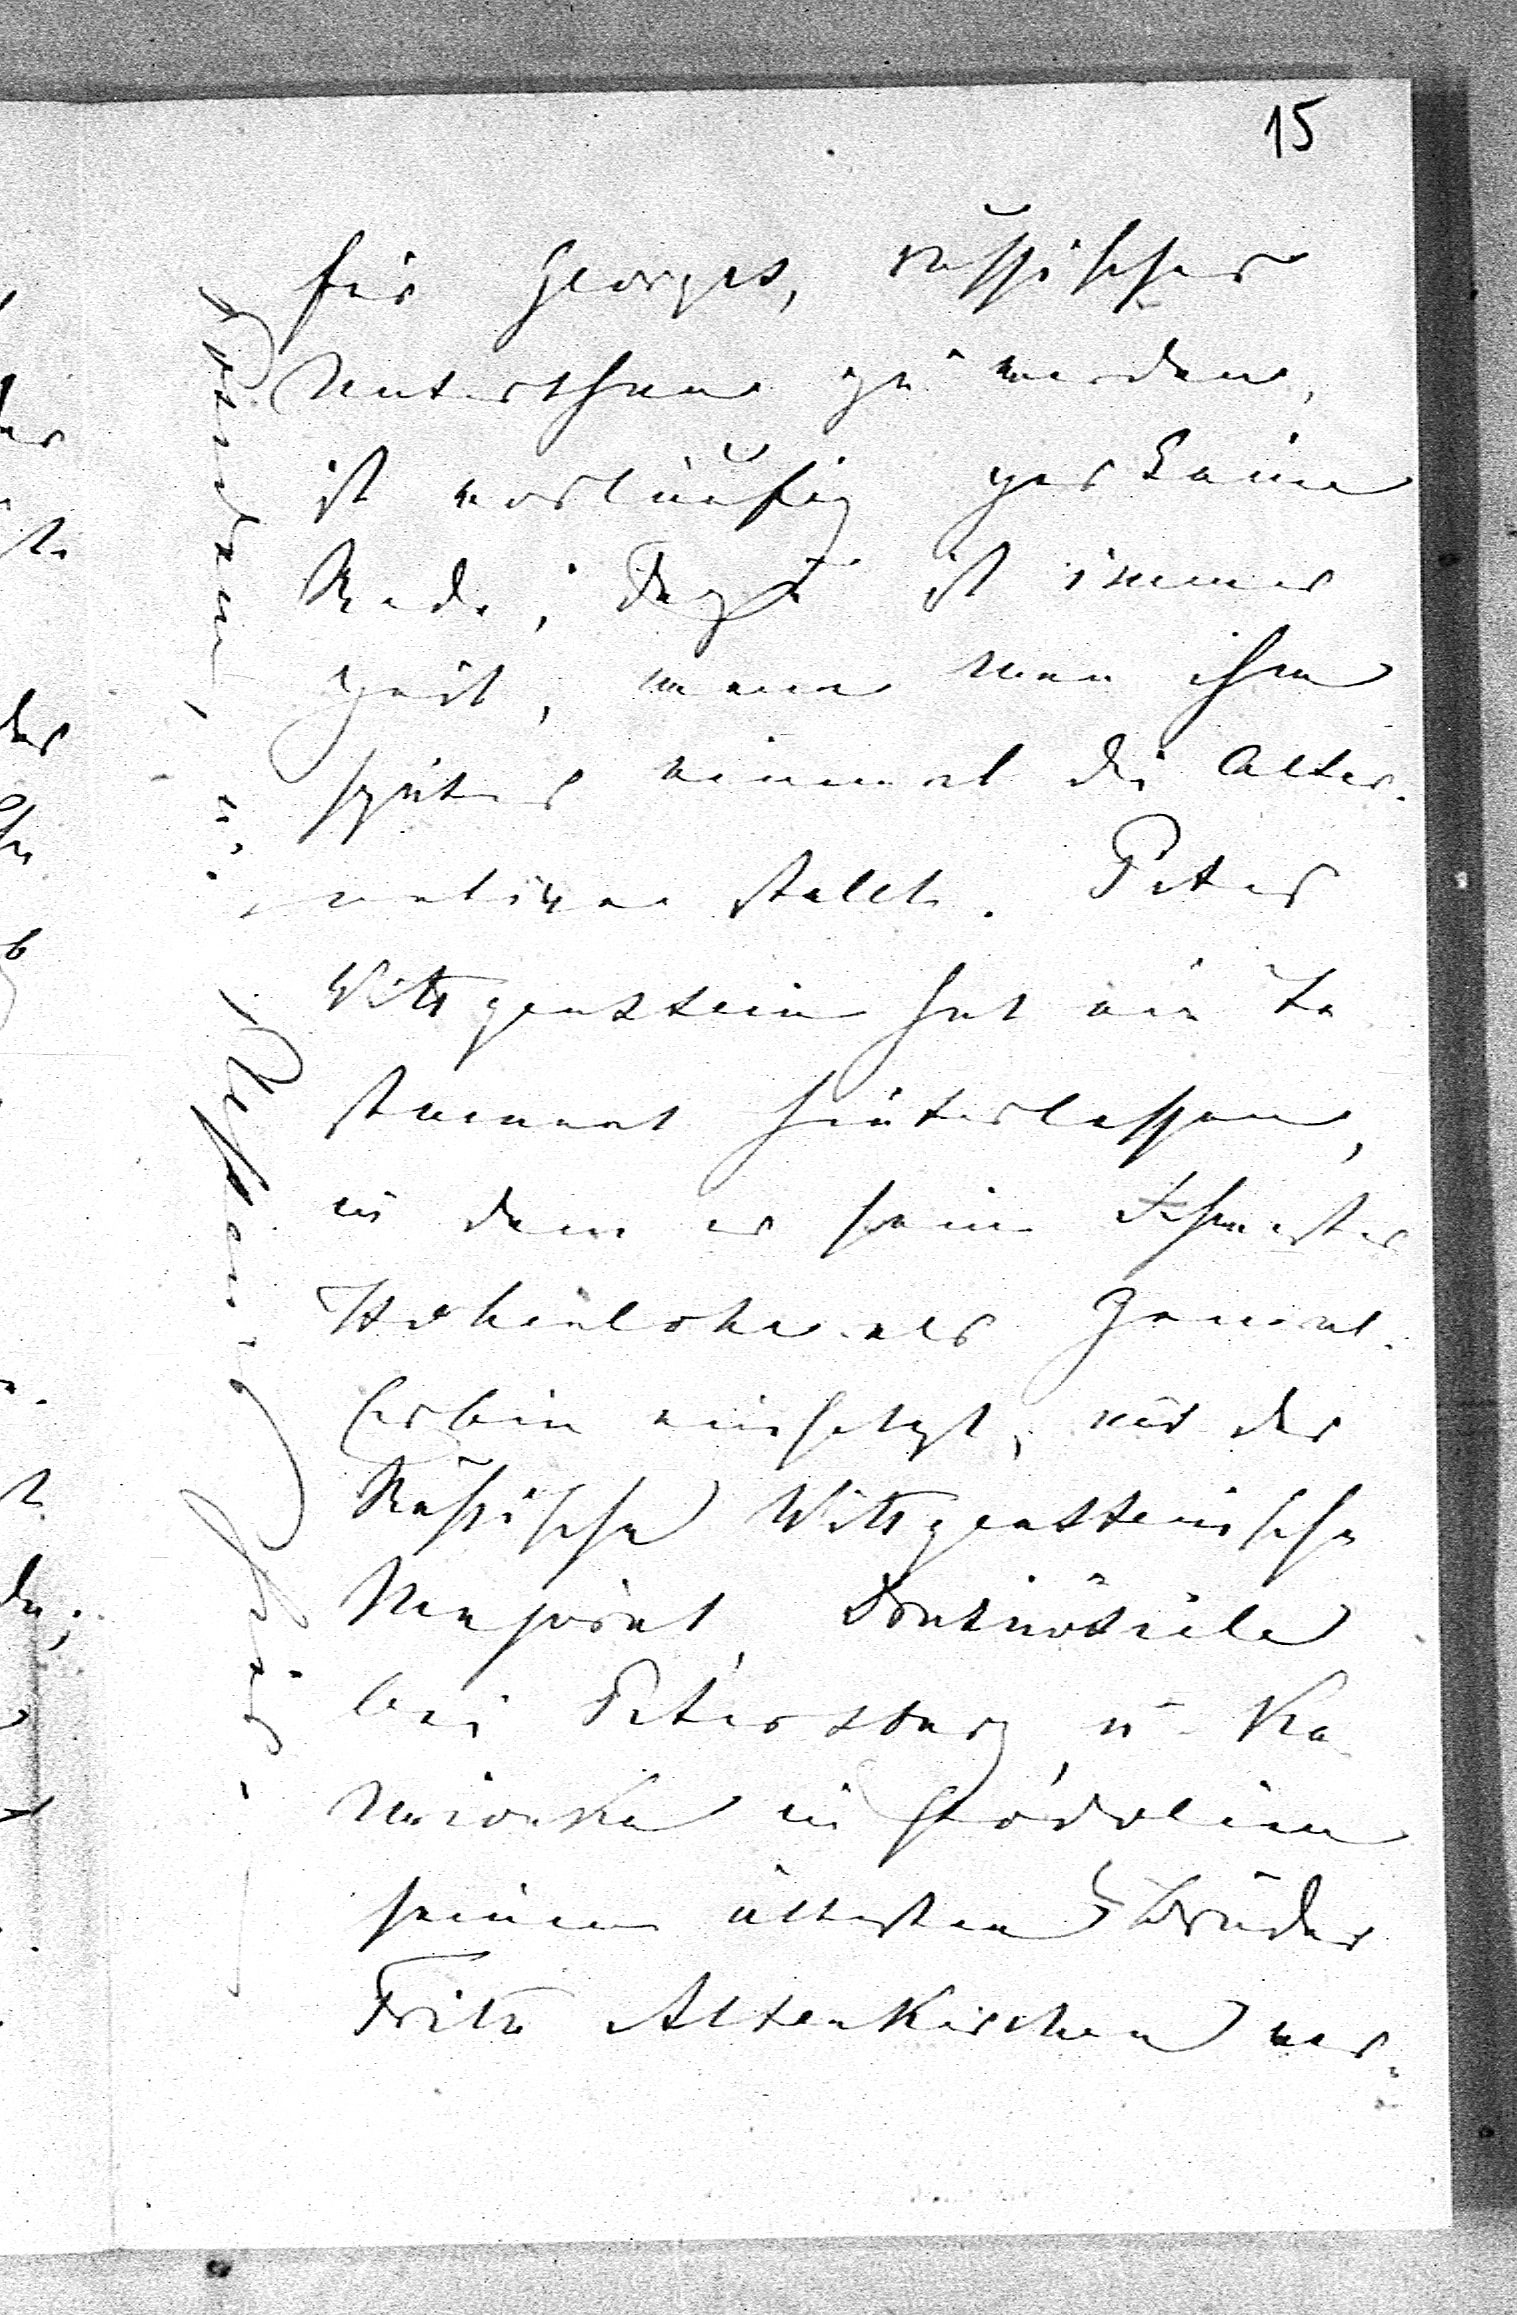 15
für Georges, russischer
Unterthan zu werden,
ist vorläufig gar keine
Rede; dazu ist immer
Zeit, wenn man ihm
später einmal die Alter-
native stellt. Peter
Wittgenstein hat ein Te
stament hinterlassen,
in dem er seine Schwester
Hohenlohe als General-
Erbin einsetzt, nur das
Russische Wittgensteinsche
Majorat, Droujnosielé
bei Petersburg, u. Ka
mionka in Podolien
seinem ältesten Bruder
Fritz Altenkirchen ver-